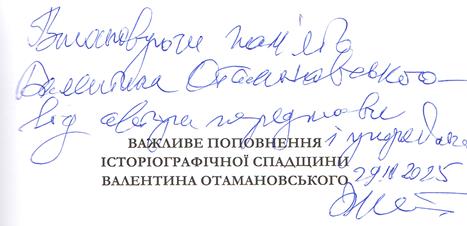 Вшановуючи пам'ять
Валентина Отамановського
від автора передмови
і упорядника
ВАЖЛИВЕ ПОПОВНЕННЯ
ІСТОРІОГРАФІЧНОЇ СПАДЩИНИ
ВАЛЕНТИНА ОТАМАНОВСЬКОГО
2025